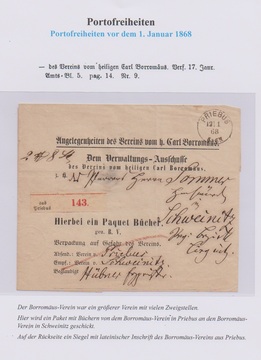 Portofreiheiten
Portofreiheiten vor dem 1. Januar 1868
— des Vereins vom heiligen Carl Borromäus. Verf. 17. Janr.
Amts-Bl. 5. pag. 14. Nr. 9.
PRIEBUS
12 1
68
Angelegenheiten des Vereins vom h. Carl Borromäus.
Dem Verwaltungs-Ausschusse
des Vereins vom heiligen Carl Borromäus.
z. H. Herrn Sommer
aus
Priebus
143.
Schweinitz
Hierbei ein Paquet Bücher.
gez. B. V.
Verpackung auf Gefahr des Vereins.
Priebus
Schweinitz
Hübner
Der Borromäus-Verein war ein größerer Verein mit vielen Zweigstellen.
Hier wird ein Paket mit Büchern von dem Borromäus-Verein in Priebus an den Borromäus-
Verein in Schweinitz geschickt.
Auf der Rückseite ein Siegel mit lateinischer Inschrift des Borromäus-Vereins aus Priebus.